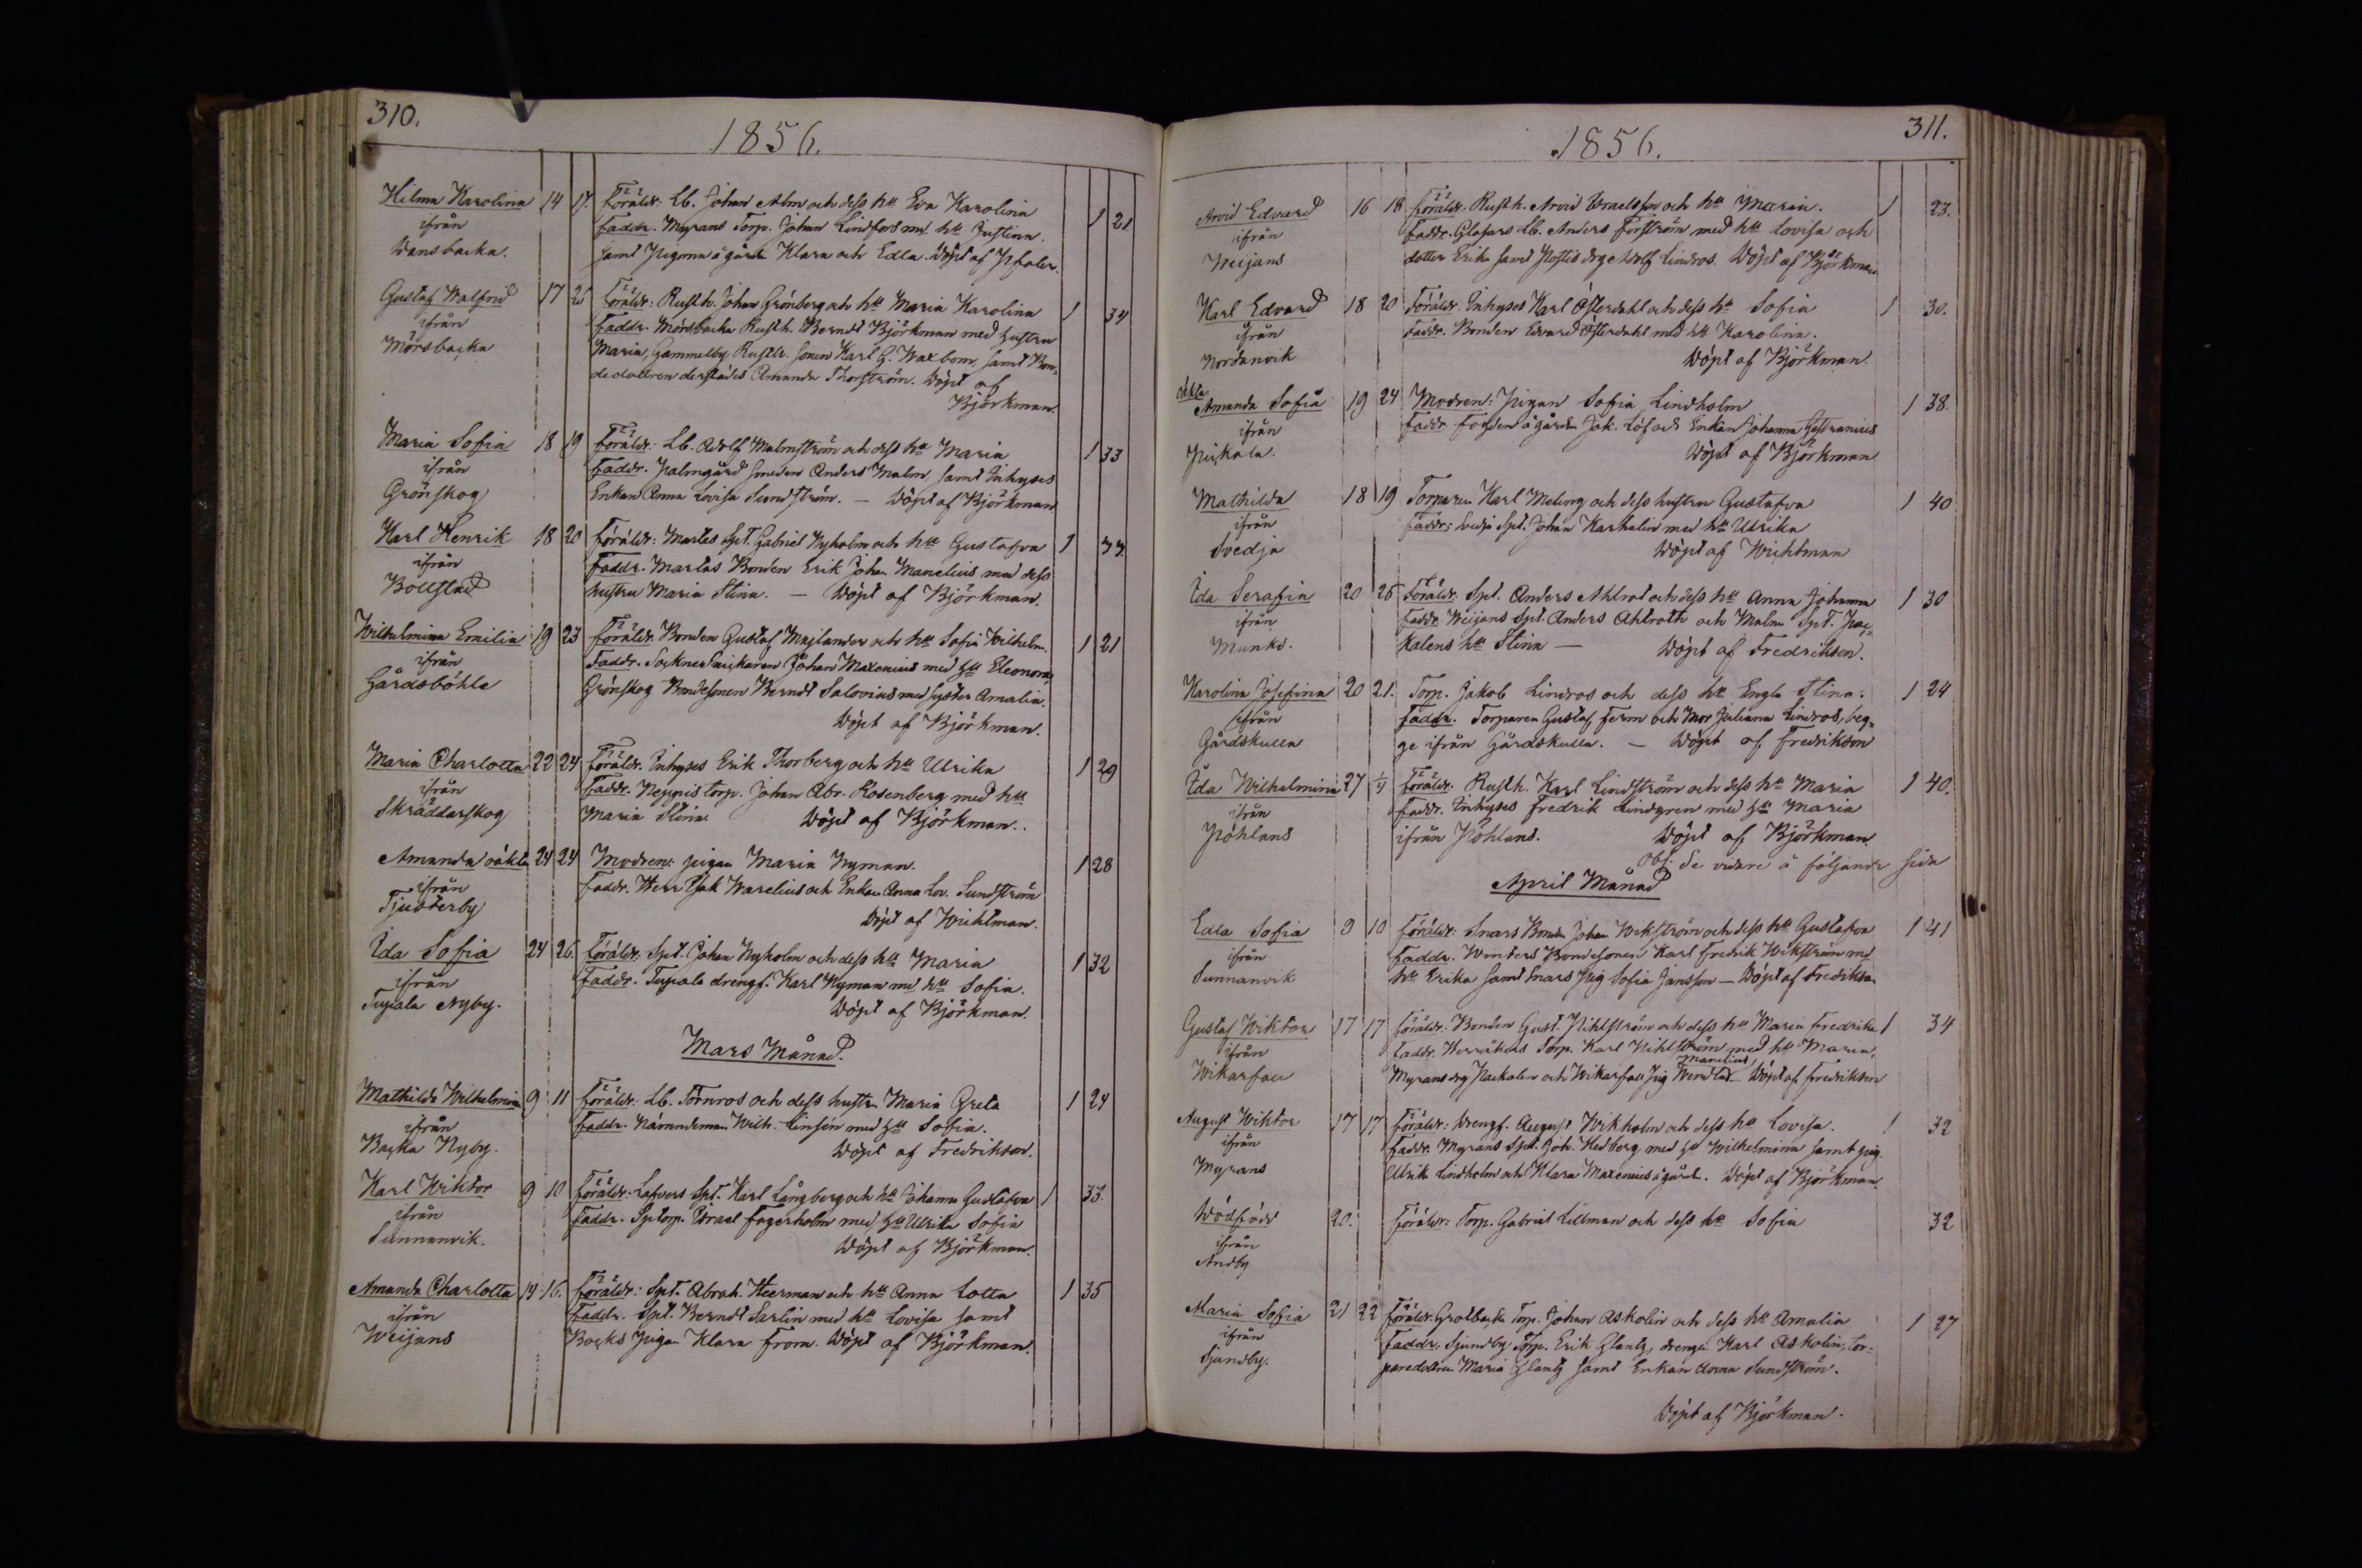 310.
1856.
Hilma Karolina 14 17. Föräldr: Lb. Johan Alm och dess hu Eva Karolina 1 21
ifrån Faddr. Myrans Torp. Johan Lindfors md hu Justina
Wansbacka. samt Pigorna å gården Klara och Edla. Döpt af
Gustaf Walfrid 17 Föräldr: Rusth. Johan Grönberg och hu Maria Karolina 1 34
ifrån Faddr. Mörsbacka Rusth. Berndt Björkman med hustru
Mörsbacka Maria, Gammelby Rusth. sonen Karl G. Waxbom, samt Bon-
dedottren derstädes Amanda Thorström. Döpt af
Björkman.
Maria Sofia 18 19 Föräldr: Lb. Adolf Malmström och dess hu Maria 1 33
ifrån Faddr. Palmgård smeden Anders Malm samt Inhyses
Grönskog Enkan Anna Lovisa Sundström. — Döpt af Björkman
Karl Henrik 18 20 Föräldr: Martas Spt. Gabriel Nyholm och hu Gustafva 1
ifrån Faddr. Martas Bonden Erik Johan Manelius med dess
Bollstad hustru Maria Stina. — Döpt af Björkman.
Wilhelmina Emilia 19 23 Föräldr. Bonden Gustaf Majlander och hu Sofia Wilhelm. 1 21
ifrån Faddr. Sockne Snickaren Johan Maxenius med hu Eleonora,
Gårdsböhle Grönskog Bondesonen Berndt Salonius med syster Amalia.
Döpt af Björkman.
Maria Charlotta 22 24 Föräldr: Inhyses Erik Thorberg och hu Ulrika 1 29
ifrån Faddr. torp. Johan Abr. Rosenberg med hu
Skräddarskog Maria Stina. Döpt af Björkman.
Amanda oäkta 24 24 Modren: pigan Maria Nyman. 1 28
ifrån Faddr. Herr Isak Warelius och Enkan Anna Lov. Sundström
Tjusterby Döpt af Wichtman.
Ida Sofia 24 26. Föräldr: Spt. Johan Nyholm och dess hu Maria 1 32
ifrån Faddr. Tupala drengf. Karl Nyman md hu Sofia.
Tupala Nyby. Döpt af Björkman.
Mars Månad.
Mathilda Wilhelmina 9 11 Föräldr: Lb. Törnros och dess hustru Maria Greta 1 24
ifrån Faddr. Nämndeman Wilh. Linsén med hu Sofia.
Backa Nyby. Döpt af Fredrikson.
Karl Wiktor 9 10 Föräldr: Lafvers Spt. Karl Långberg och hu Johanna Gustafva 1 33.
ifrån Faddr. Sptorp. Israel Fagerholm med hu Ulrika Sofia
Sunnanvik. Döpt af Björkman.
Amanda Charlotta 14 16. Föräldr: Spt. Abrah. Heerman och hu Anna Lotta 1 35
ifrån Faddr. Spt. Berndt Sarlin med hu Lovisa samt
Weijans Backs Pigan Klara From. Döpt af Björkman.
311.
1856.
Arvid Edvard 16 18 Föräldr. Rusth. Arvid Israelsson och hu Maria. 1 23.
ifrån Faddr. Glasars Lb. Anders Forström med hu Lovisa och
Weijans dotter Erika samt drg Adolf Lindros. Döpt af Björkman.
Karl Edvard 18 20 Föräldr. Inhyses Karl Österdahl och dess hu Sofia 1 30.
ifrån Faddr. Bonden Edvard Österdahl med hu Karolina.
Nordanvik Döpt af Björkman.
oäkta
Amanda Sofia 19 24 Modren: Pigan Sofia Lindholm 1 38.
ifrån Faddr Fogden å gården Jak. Löf och Enkan Johanna
Pickala. Döpt af Björkman
Mathilda 18 19 Torparen Karl Maling och dess hustru Gustafva 1 40
ifrån Faddr: Svedja Spt. Johan Karhelin med hu Ulrika
Svedja Döpt af Wichtman
Ida Serafia 20 26 Föräldr. Spt. Anders Ahlrot och dess hu Anna Johanna 1 30
ifrån Faddr. Weijans Spt. Anders Ahlroth och Malm Spt.
Munks. hu Stina — Döpt af Fredrikson.
Karolina Josefina 20 21. Torp. Jakob Lindros och dess hu Engla Stina. 1 24
ifrån Faddr. Torparen Gustaf Ferm och Mor Juliana Lindros, beg-
Gårdskulla ge ifrån Gårdskulla. — Döpt af Fredrikson
Ida Wilhelmina 27 1/4 Föräldr: Rusth. Karl Lindström och dess hu Maria 1 40.
ifrån Faddr. Inhyses Fredrik Lindgren med hu Maria
Pöhlans ifrån Pöhlans. Döpt af Björkman.
Obs. Se vidare å följande sida
April Månad
Edla Sofia 9 10 Föräldr: Snars Bonden Johan Wikström och dess hu Gustafva 1 41
ifrån Faddr. Winters Bondesonen Karl Fredrik Wikström md
Sunnanvik hu Erika samt Snars Pig Sofia Jansson — Döpt af Fredrikson
Gustaf Wiktor 17 17 Föräldr: Bonden Gust. Pihlström och dess hu Maria Fredrika 1 34
ifrån Faddr. Herråkers Torp. Karl Pihlström med hu Maria,
Manelius
Wikarfall Myrans drg och Wikarfall Pig Wendla — Döpt af Fredrikson
August Wiktor 17 17 Föräldr: Drengf. August Wikholm och dess hu Lovisa. 1 32
ifrån Faddr. Myrans Spt. Joh. Hedberg med hu Wilhelmina samt pig.
Myrans Ulrik Lindholm och Klara Maxenius å gården. Döpt af Björkman.
Dödfödd 20. Föräldr: Torp. Gabriel Lillman och dess hu Sofia 32
ifrån
Andby
Maria Sofia 21 22 Föräldr: Torp. Johan Askolin och dess hu Amalia 1 27
ifrån Faddr. Sjundby Torp. Erik Glantz, drengen Karl Askolin, tor-
Sjundby. paredottren Maria Glantz samt Enkan Anna Sundström.
Döpt af Björkman.